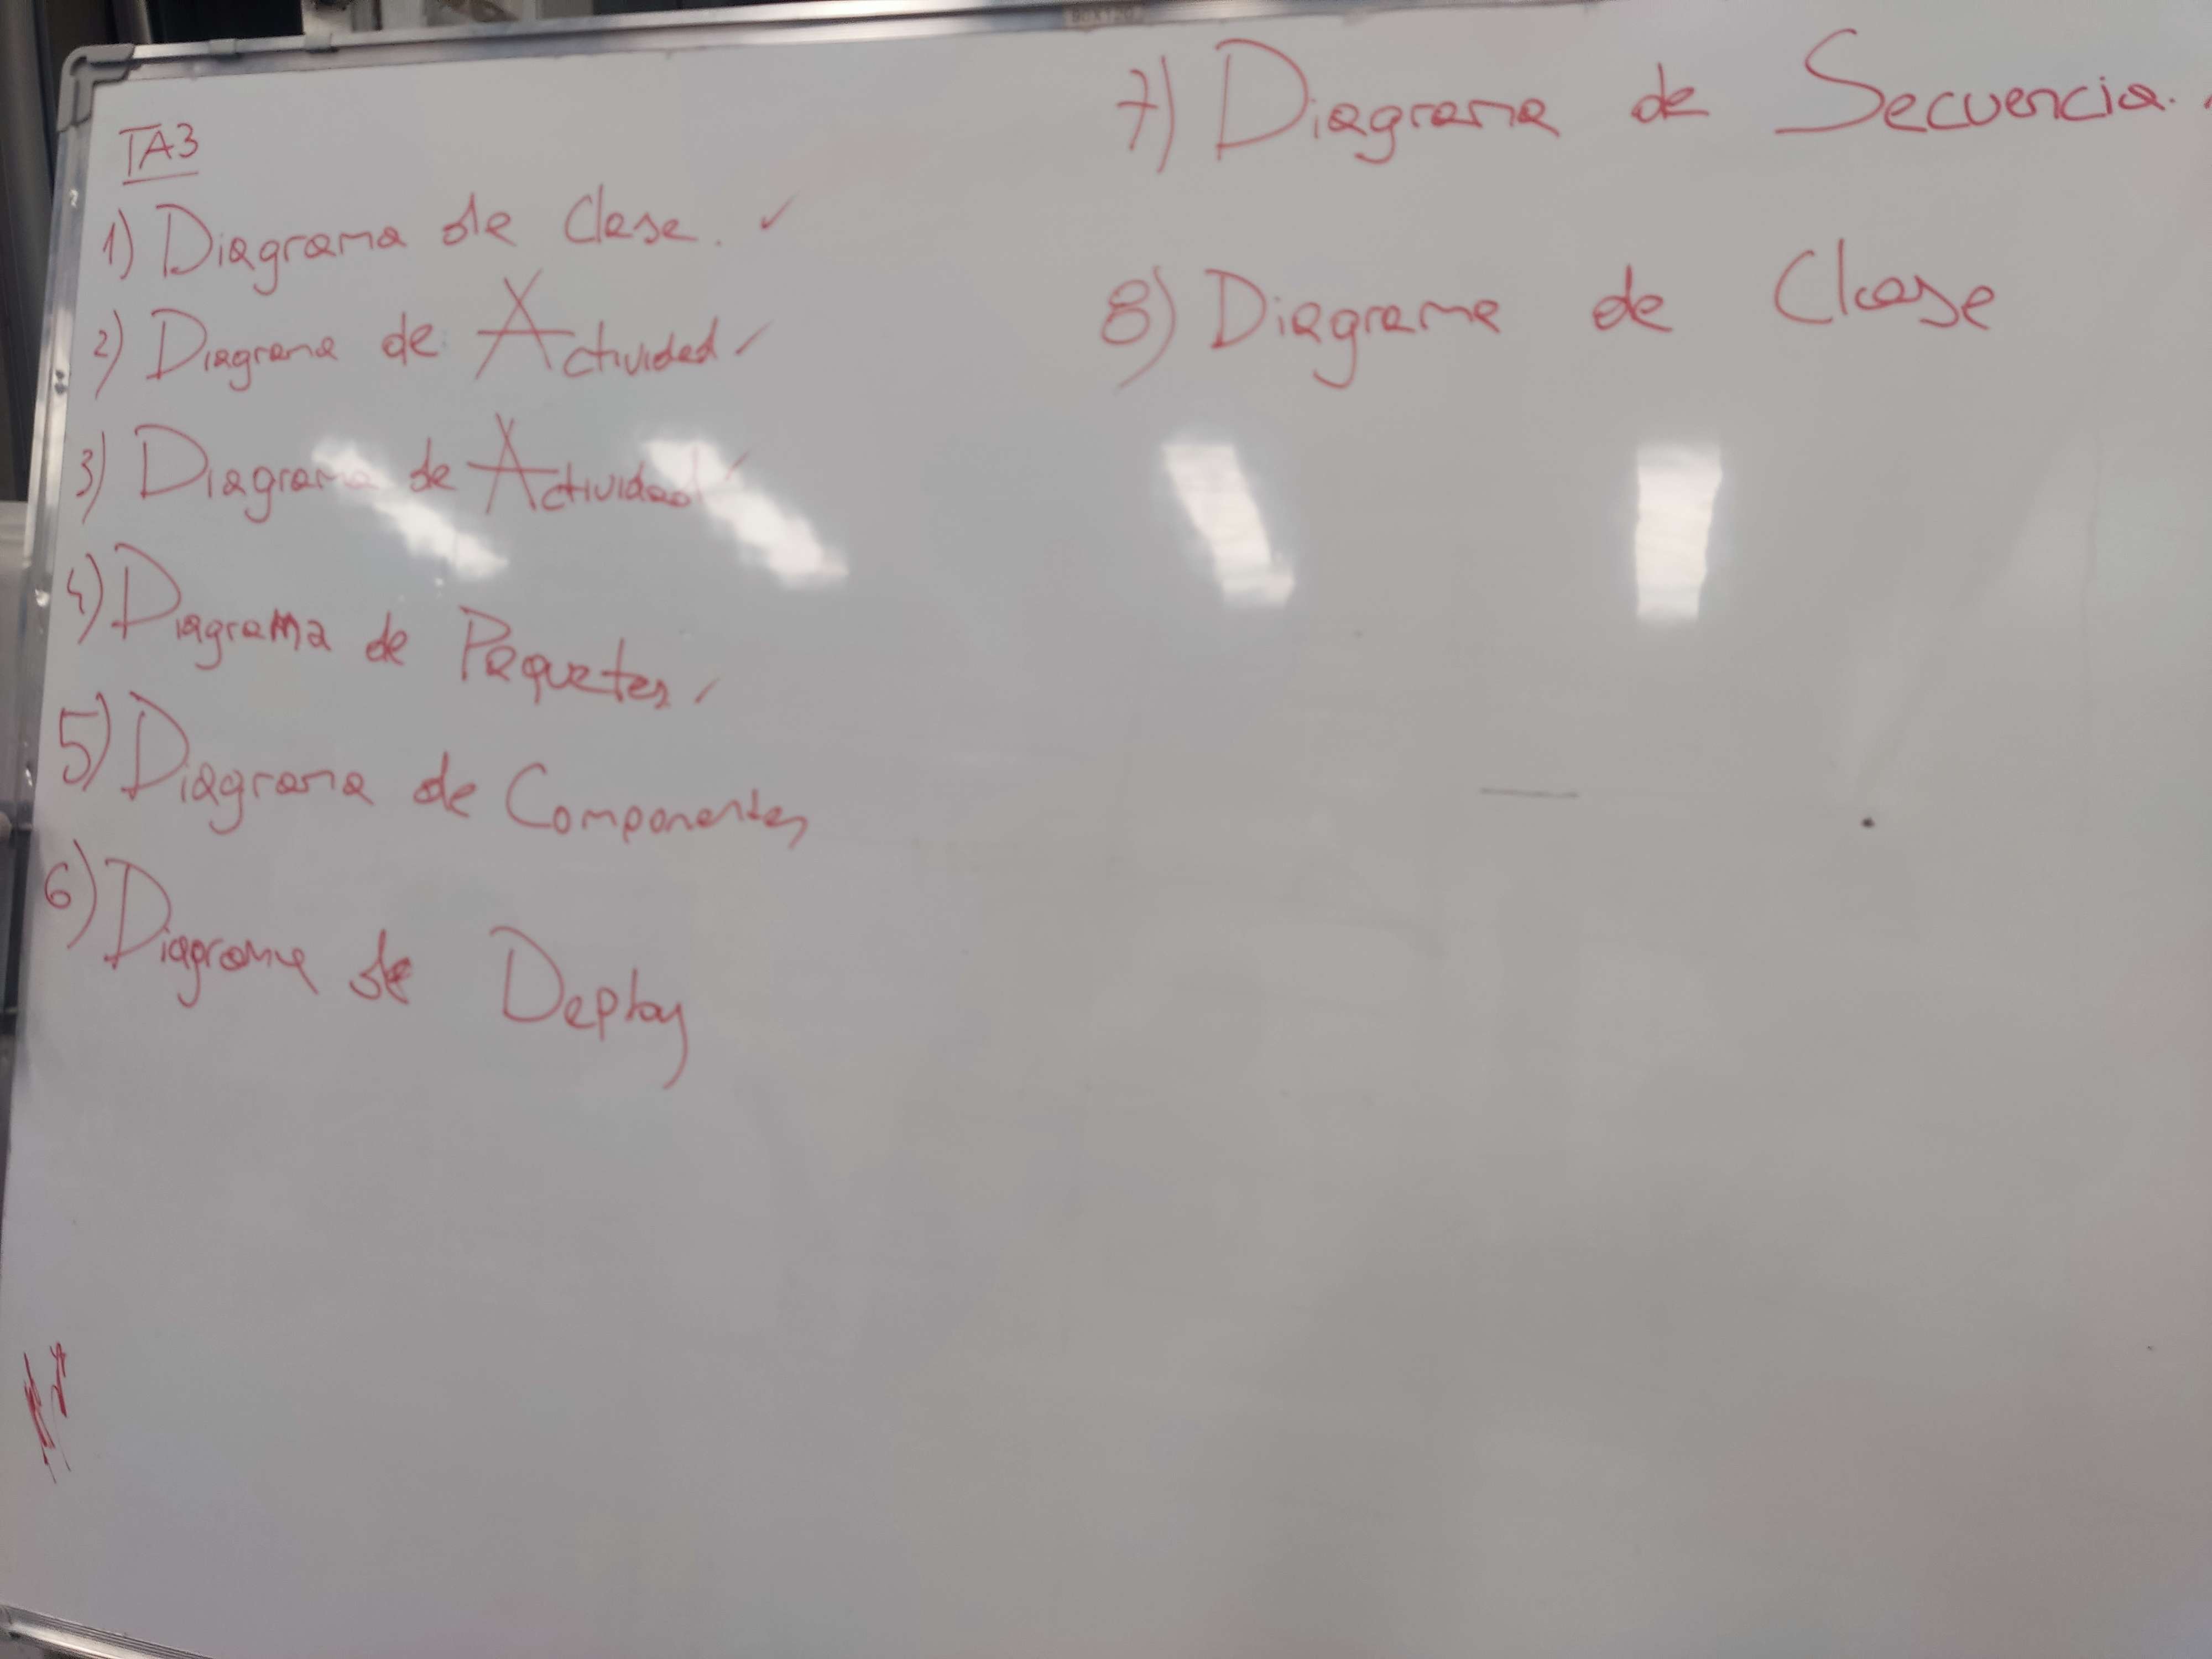 TA3
1) Diagrama de Clase. ✓
2) Diagrama de Actividad ✓
3) Diagrama de Actividad ✓
4) Diagrama de Paquetes ✓
5) Diagrama de Componentes
6) Diagrama de Deploy
7) Diagrama de Secuencia.
8) Diagrama de Clase